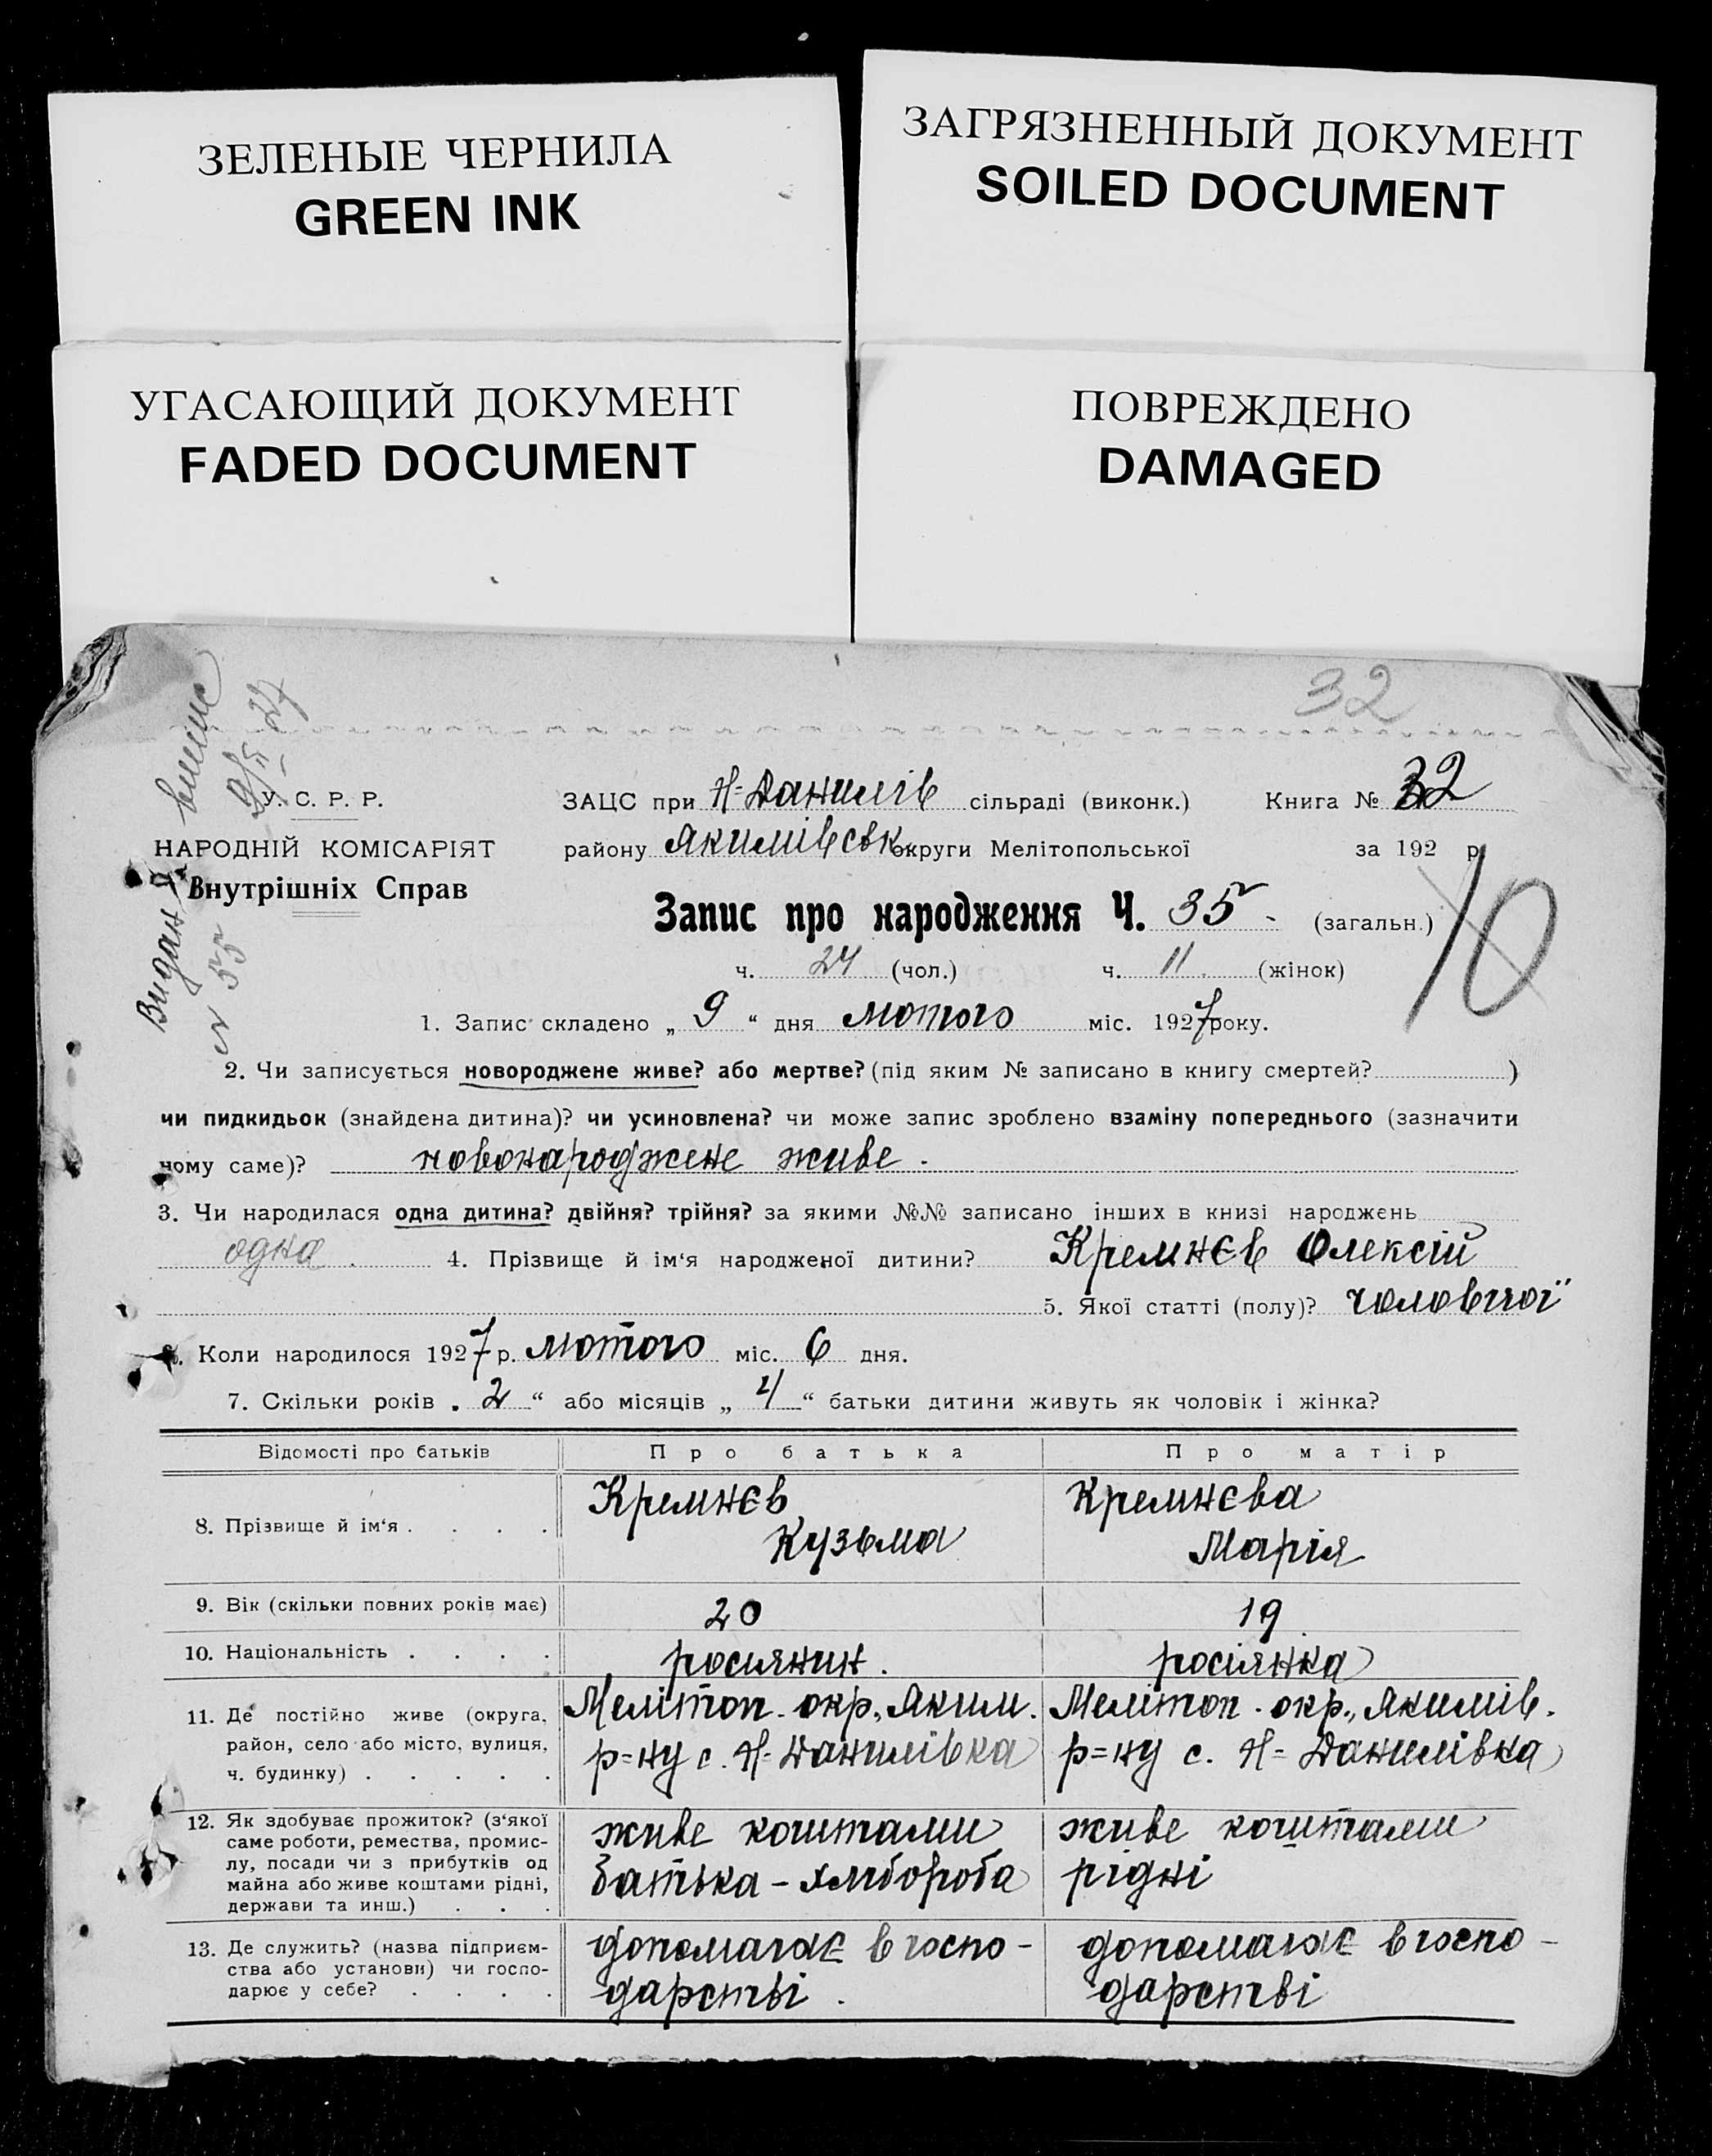 ЗЕЛЕНЫЕ ЧЕРНИЛА
GREEN INK
ЗАГРЯЗНЕННЫЙ ДОКУМЕНТ
SOILED DOCUMENT
УГАСАЮЩИЙ ДОКУМЕНТ
FADED DOCUMENT
ПОВРЕЖДЕНО
DAMAGED
32
Видан
N 55
У. С. Р. Р.
НАРОДНІЙ КОМІСАРІЯТ
Внутрішніх Справ
ЗАЦС при Н-Данилів сільраді (виконк.) Книга № 32
району Якимівськ округи Мелітопольської за 192 р.
10
Запис про народження Ч. 35 (загальн.)
ч. 24 (чол.) ч. 11 (жінок)
1. Запис складено „ 9 “ дня лютого міс. 1927 року.
2. Чи записується новороджене живе? або мертве? (під яким № записано в книгу смертей? )
чи пидкидьок (знайдена дитина)? чи усиновлена? чи може запис зроблено взаміну попереднього (зазначити
чому саме)? новонароджене живе.
3. Чи народилася одна дитина? двійня? трійня? за якими №№ записано інших в книзі народжень
одна. 4. Прізвище й ім‘я народженої дитини? Кремнєв Олексій
5. Якої статті (полу)? чоловічої
6. Коли народилося 1927 р. лютого міс. 6 дня.
7. Скільки років „ 2 “ або місяців „ 4 “ батьки дитини живуть як чоловік і жінка?
Відомості про батьків Про батька Про матір
8. Прізвище й ім‘я . . . .
Кремнєв
Кузьма
Кремнєва
Марія
9. Вік (скільки повних років має) 20 19
10. Національність . . . . росіянин. росіянка
11. Де постійно живе (округа,
район, село або місто, вулиця,
ч. будинку) . . . . .
Мелітоп. окр., Яким.
р=ну с. Н-Данилівка
Мелітоп. окр., Якимів.
р=ну с. Н=Данилівка
12. Як здобуває прожиток? (з‘якої
саме роботи, ремества, промис-
лу, посади чи з прибутків од
майна або живе коштами рідні,
держави та инш.) . . .
живе коштами
батька - хлібороба
живе коштами
рідні
13. Де служить? (назва підприєм-
ства або установи) чи госпо-
дарює у себе? . . . .
допомагає в госпо-
дарстві.
допомагає в госпо-
дарстві